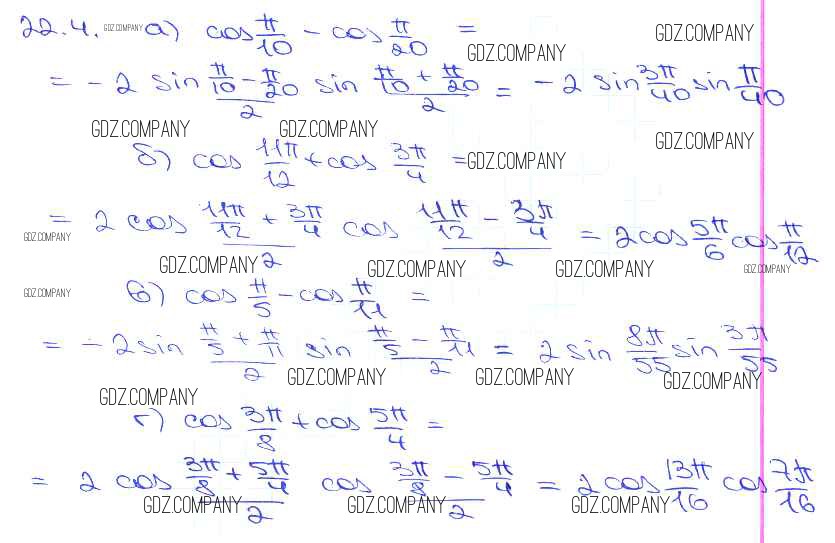 22.4. GDZ.COMPANY а) cos π/10 − cos π/20 =
GDZ.COMPANY GDZ.COMPANY
= −2 sin (π/10 − π/20)/2 sin (π/10 + π/20)/2 = −2 sin 3π/40 sin π/40
GDZ.COMPANY GDZ.COMPANY GDZ.COMPANY
б) cos 11π/12 + cos 3π/4 = GDZ.COMPANY
= 2 cos (11π/12 + 3π/4)/2 cos (11π/12 − 3π/4)/2 = 2 cos 5π/6 cos π/12
GDZ.COMPANY GDZ.COMPANY GDZ.COMPANY GDZ.COMPANY GDZ.COMPANY
GDZ.COMPANY в) cos π/5 − cos π/11 =
= −2 sin (π/5 + π/11)/2 sin (π/5 − π/11)/2 = 2 sin 8π/55 sin 3π/55
GDZ.COMPANY GDZ.COMPANY GDZ.COMPANY GDZ.COMPANY
г) cos 3π/8 + cos 5π/4 =
= 2 cos (3π/8 + 5π/4)/2 cos (3π/8 − 5π/4)/2 = 2 cos 13π/16 cos 7π/16
GDZ.COMPANY GDZ.COMPANY GDZ.COMPANY